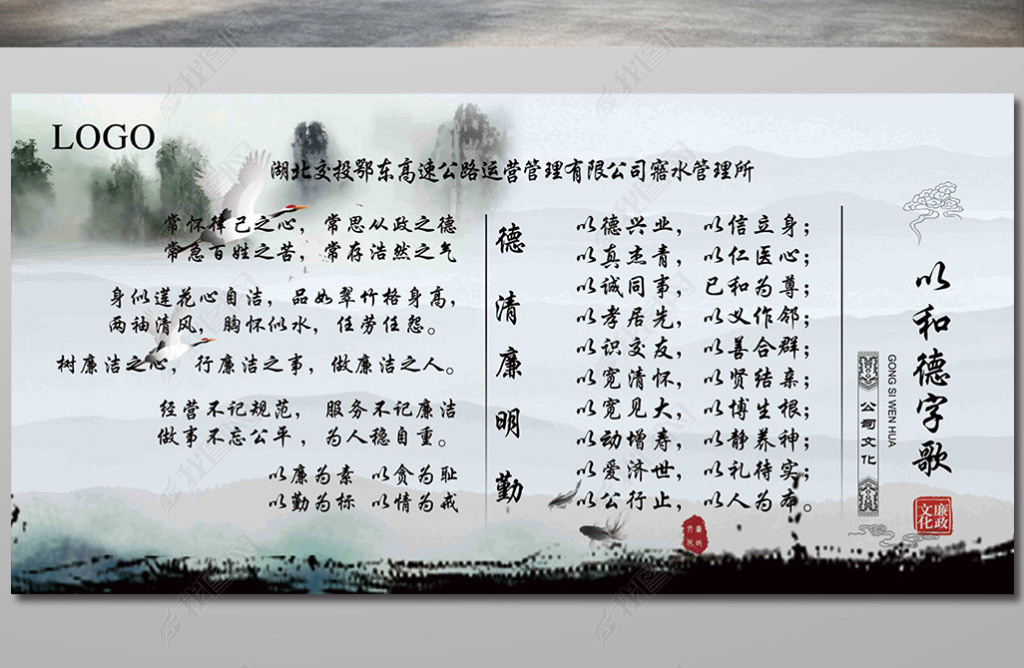 LOGO
湖北交投鄂东高速公路运营管理有限公司窑水管理所
常怀律己之心，常思从政之德
常急百姓之苦，常存浩然之气
身似莲花心自洁，品如翠竹格身高，
两袖清风，胸怀似水，任劳任怨。
树廉洁之心，行廉洁之事，做廉洁之人。
经营不记规范，服务不记廉洁
做事不忘公平，为人稳自重。
以廉为素 以贪为耻
以勤为标 以情为戒
德清廉明勤
以德兴业，以信立身；
以真杰青，以仁医心；
以诚同事，已和为尊；
以孝居先，以义作邻；
以识交友，以善合群；
以宽清怀，以贤结亲；
以宽见大，以博生根；
以动增寿，以静养神；
以爱济世，以礼待实；
以公行止，以人为本。
以和德字歌
GONG SI WEN HUA
公司文化
廉政文化